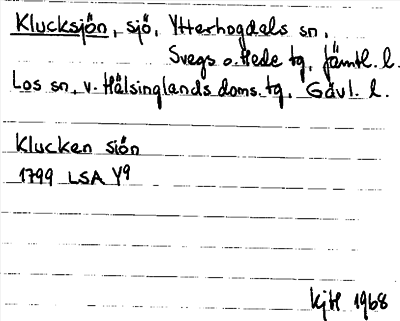 Klucksjön, sjö, Ytterhogdals sn,
Svegs o. Hede tg, Jämtl. l.
Los sn, v. Hälsinglands doms. tg, Gävl. l.
Klucken siön
1799 LSA Y9
kjtl 1968